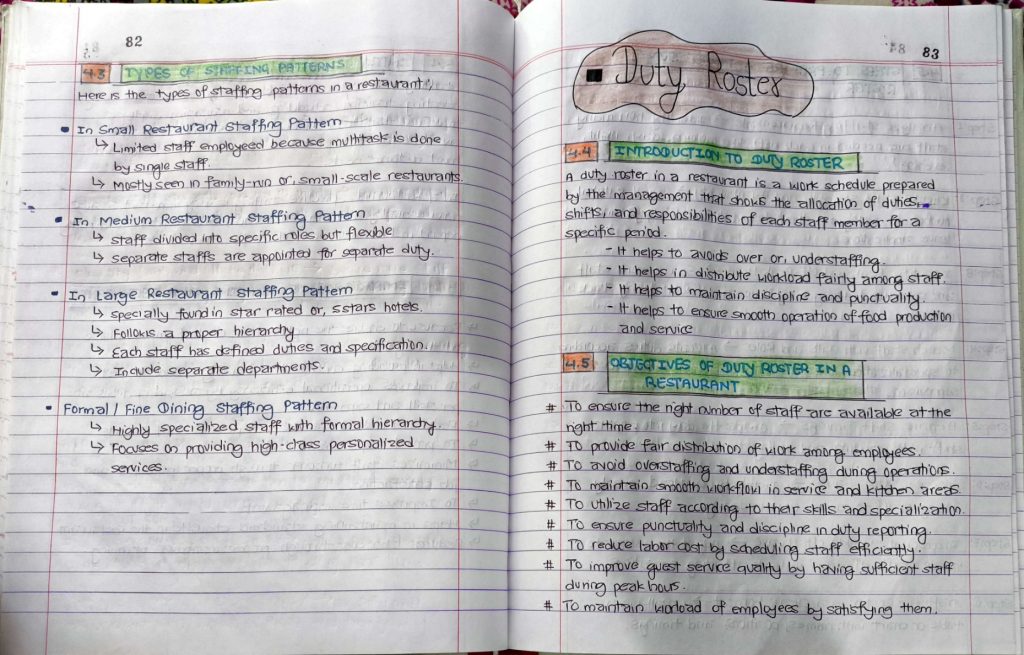 82
4.3 TYPES OF STAFFING PATTERNS
Here is the types of staffing patterns in a restaurant:
• In Small Restaurant Staffing Pattern
↳ Limited staff employeed because multitask is done
by single staff.
↳ Mostly seen in family-run or, small-scale restaurants.
• In Medium Restaurant Staffing Pattern
↳ Staff divided into specific roles but flexible
↳ Separate staffs are appointed for separate duty.
• In Large Restaurant Staffing Pattern
↳ Specially found in star rated or, 5stars hotels.
↳ Follows a proper hierarchy
↳ Each staff has defined duties and specification.
↳ Include separate departments.
• Formal / Fine Dining Staffing Pattern
↳ Highly specialized staff with formal hierarchy.
↳ Focuses on providing high-class personalized
services.
83
Duty Roster
4.4 INTRODUCTION TO DUTY ROSTER
A duty roster in a restaurant is a work schedule prepared
by the management that shows the allocation of duties,
shifts, and responsibilities of each staff member for a
specific period.
- It helps to avoids over or, understaffing.
- It helps in distribute workload fairly among staff.
- It helps to maintain discipline and punctuality.
- It helps to ensure smooth operation of food production
and service
4.5 OBJECTIVES OF DUTY ROSTER IN A
RESTAURANT
# To ensure the right number of staff are available at the
right time.
# To provide fair distribution of work among employees.
# To avoid overstaffing and understaffing during operations.
# To maintain smooth workflow in service and kitchen areas.
# To utilize staff according to their skills and specialization.
# To ensure punctuality and discipline in duty reporting.
# To reduce labor cost by scheduling staff efficiently.
# To improve guest service quality by having sufficient staff
during peak hours.
# To maintain worload of employees by satisfying them.